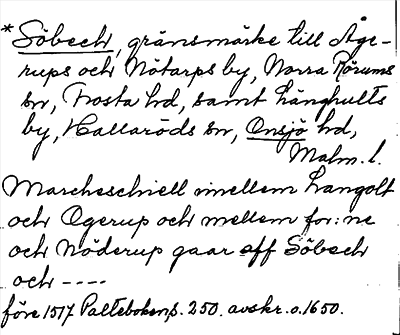 *Söbech, gränsmärke till Åge-
rups och Nötarps by, Norra Rörums
sn, Frosta hd, samt Länghults
by, Hallaröds sn, Onsjö hd,
Malm. l.
Marcheschiell mellem Langolt
och Ogerup och mellem for:ne
och Nöderup gaar aff Söbech
och ----
före 1517 Paltebokens. 250. avskr. o. 1650.